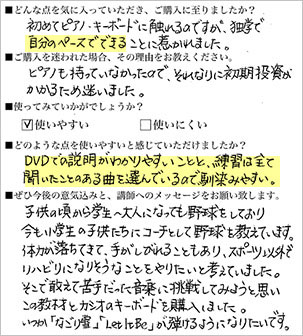 ■どんな点を気に入っていただき、ご購入に至りましたか？
初めてピアノ・キーボードに触れるのですが、独学で
自分のペースでできることに惹かれました。
■ご購入を迷われた場合、その理由をお教えください。
ピアノも持っていなかったので、それなりに初期投資が
かかるため迷いました。
■使ってみていかがでしょうか？
☑使いやすい □使いにくい
■どのような点を使いやすいと感じていただけましたか？
DVDでの説明がわかりやすいことと、練習は全て
聞いたことのある曲を選んでいるので馴染みやすい。
■ぜひ今後の意気込みと、講師へのメッセージをお願い致します。
子供の頃から学生～大人になっても野球をしており
今も小学生の子供たちにコーチとして野球を教えています。
体力が落ちてきて、手がしびれることもあり、スポーツ以外で
リハビリになりそうなことをやりたいと考えていました。
そこで敢えて苦手だった音楽に挑戦してみようと思い
この教材とカシオのキーボードを購入しました。
いつか「なごり雪」「Let It Be」が弾けるようになりたいです。